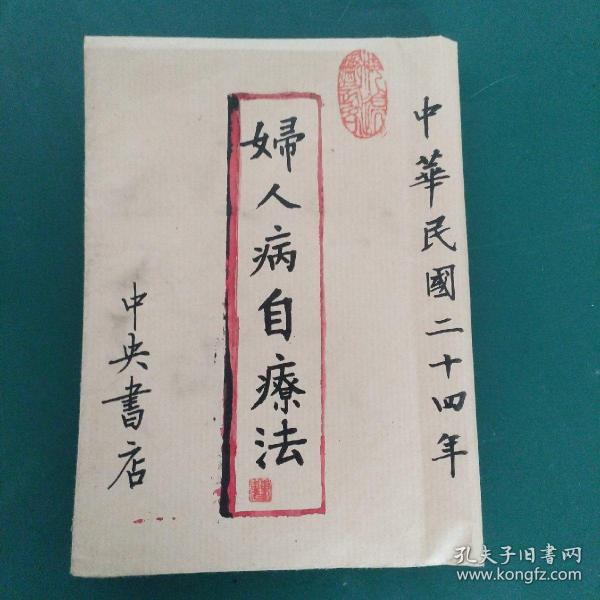 中華民國二十四年
婦人病自療法
中央書店
孔夫子旧书网
www.kongfz.com